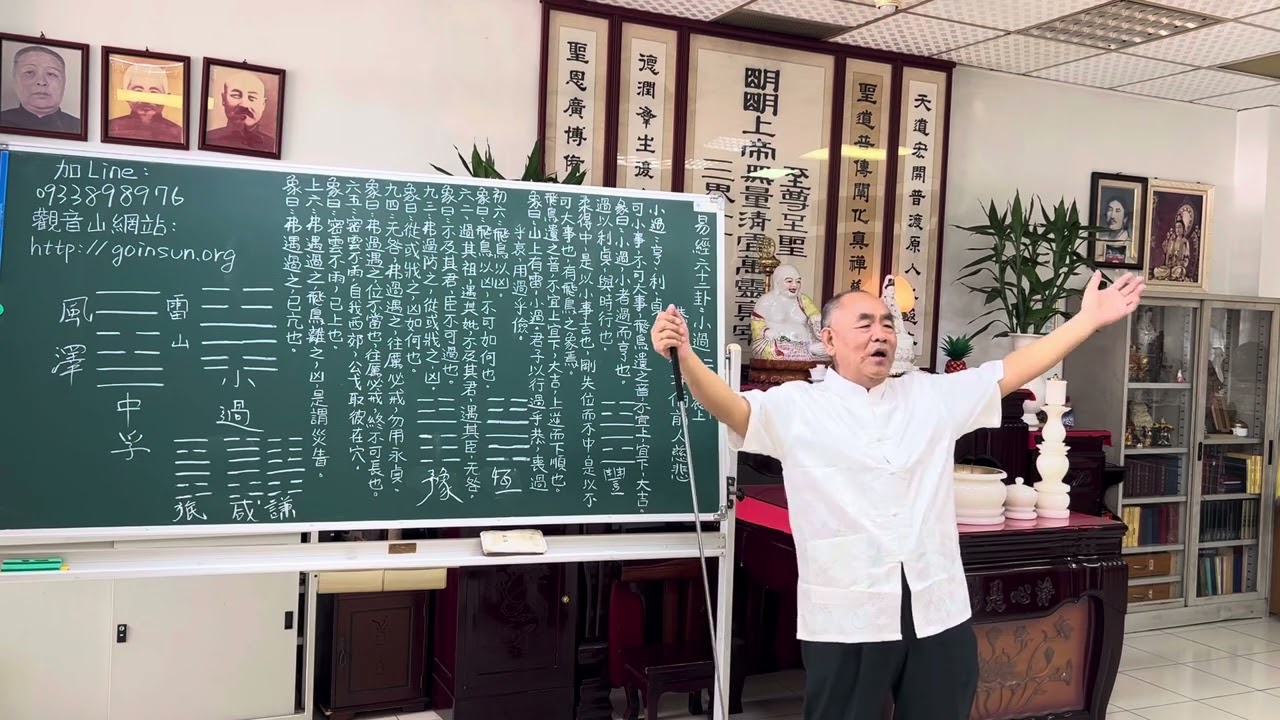 聖恩廣博
德潤羣生
明明上帝無量清
至尊至聖
聖道普傳闡化真禪
天道宏開普渡原人
加Line：
0933898976
觀音山網站：
http://goinsun.org
易經六十二卦：小過
前人慈悲
小過：亨，利貞，
可小事，不可大事，飛鳥遺之音，不宜上宜下，大吉。
彖曰：小過，小者過而亨也。
過以利貞，與時行也。
柔得中，是以小事吉也，剛失位而不中，是以不
可大事也，有飛鳥之象焉。
飛鳥遺之音，不宜上宜下，大吉，上逆而下順也。
象曰：山上有雷，小過，君子以行過乎恭，喪過
乎哀，用過乎儉。
初六：飛鳥以凶。
象曰：飛鳥以凶，不可如何也。
六二：過其祖，遇其妣，不及其君，遇其臣，无咎。
象曰：不及其君，臣不可過也。
九三：弗過防之，從或戕之，凶。
象曰：從或戕之，凶如何也。
九四：无咎，弗過遇之，往厲必戒，勿用永貞。
象曰：弗過遇之，位不當也，往厲必戒，終不可長也。
六五：密雲不雨，自我西郊，公弋取彼在穴。
象曰：密雲不雨，已上也。
上六：弗遇過之，飛鳥離之，凶，是謂災眚。
象曰：弗遇過之，已亢也。
豐
恆
豫
雷山
小過
謙
咸
風澤
中孚